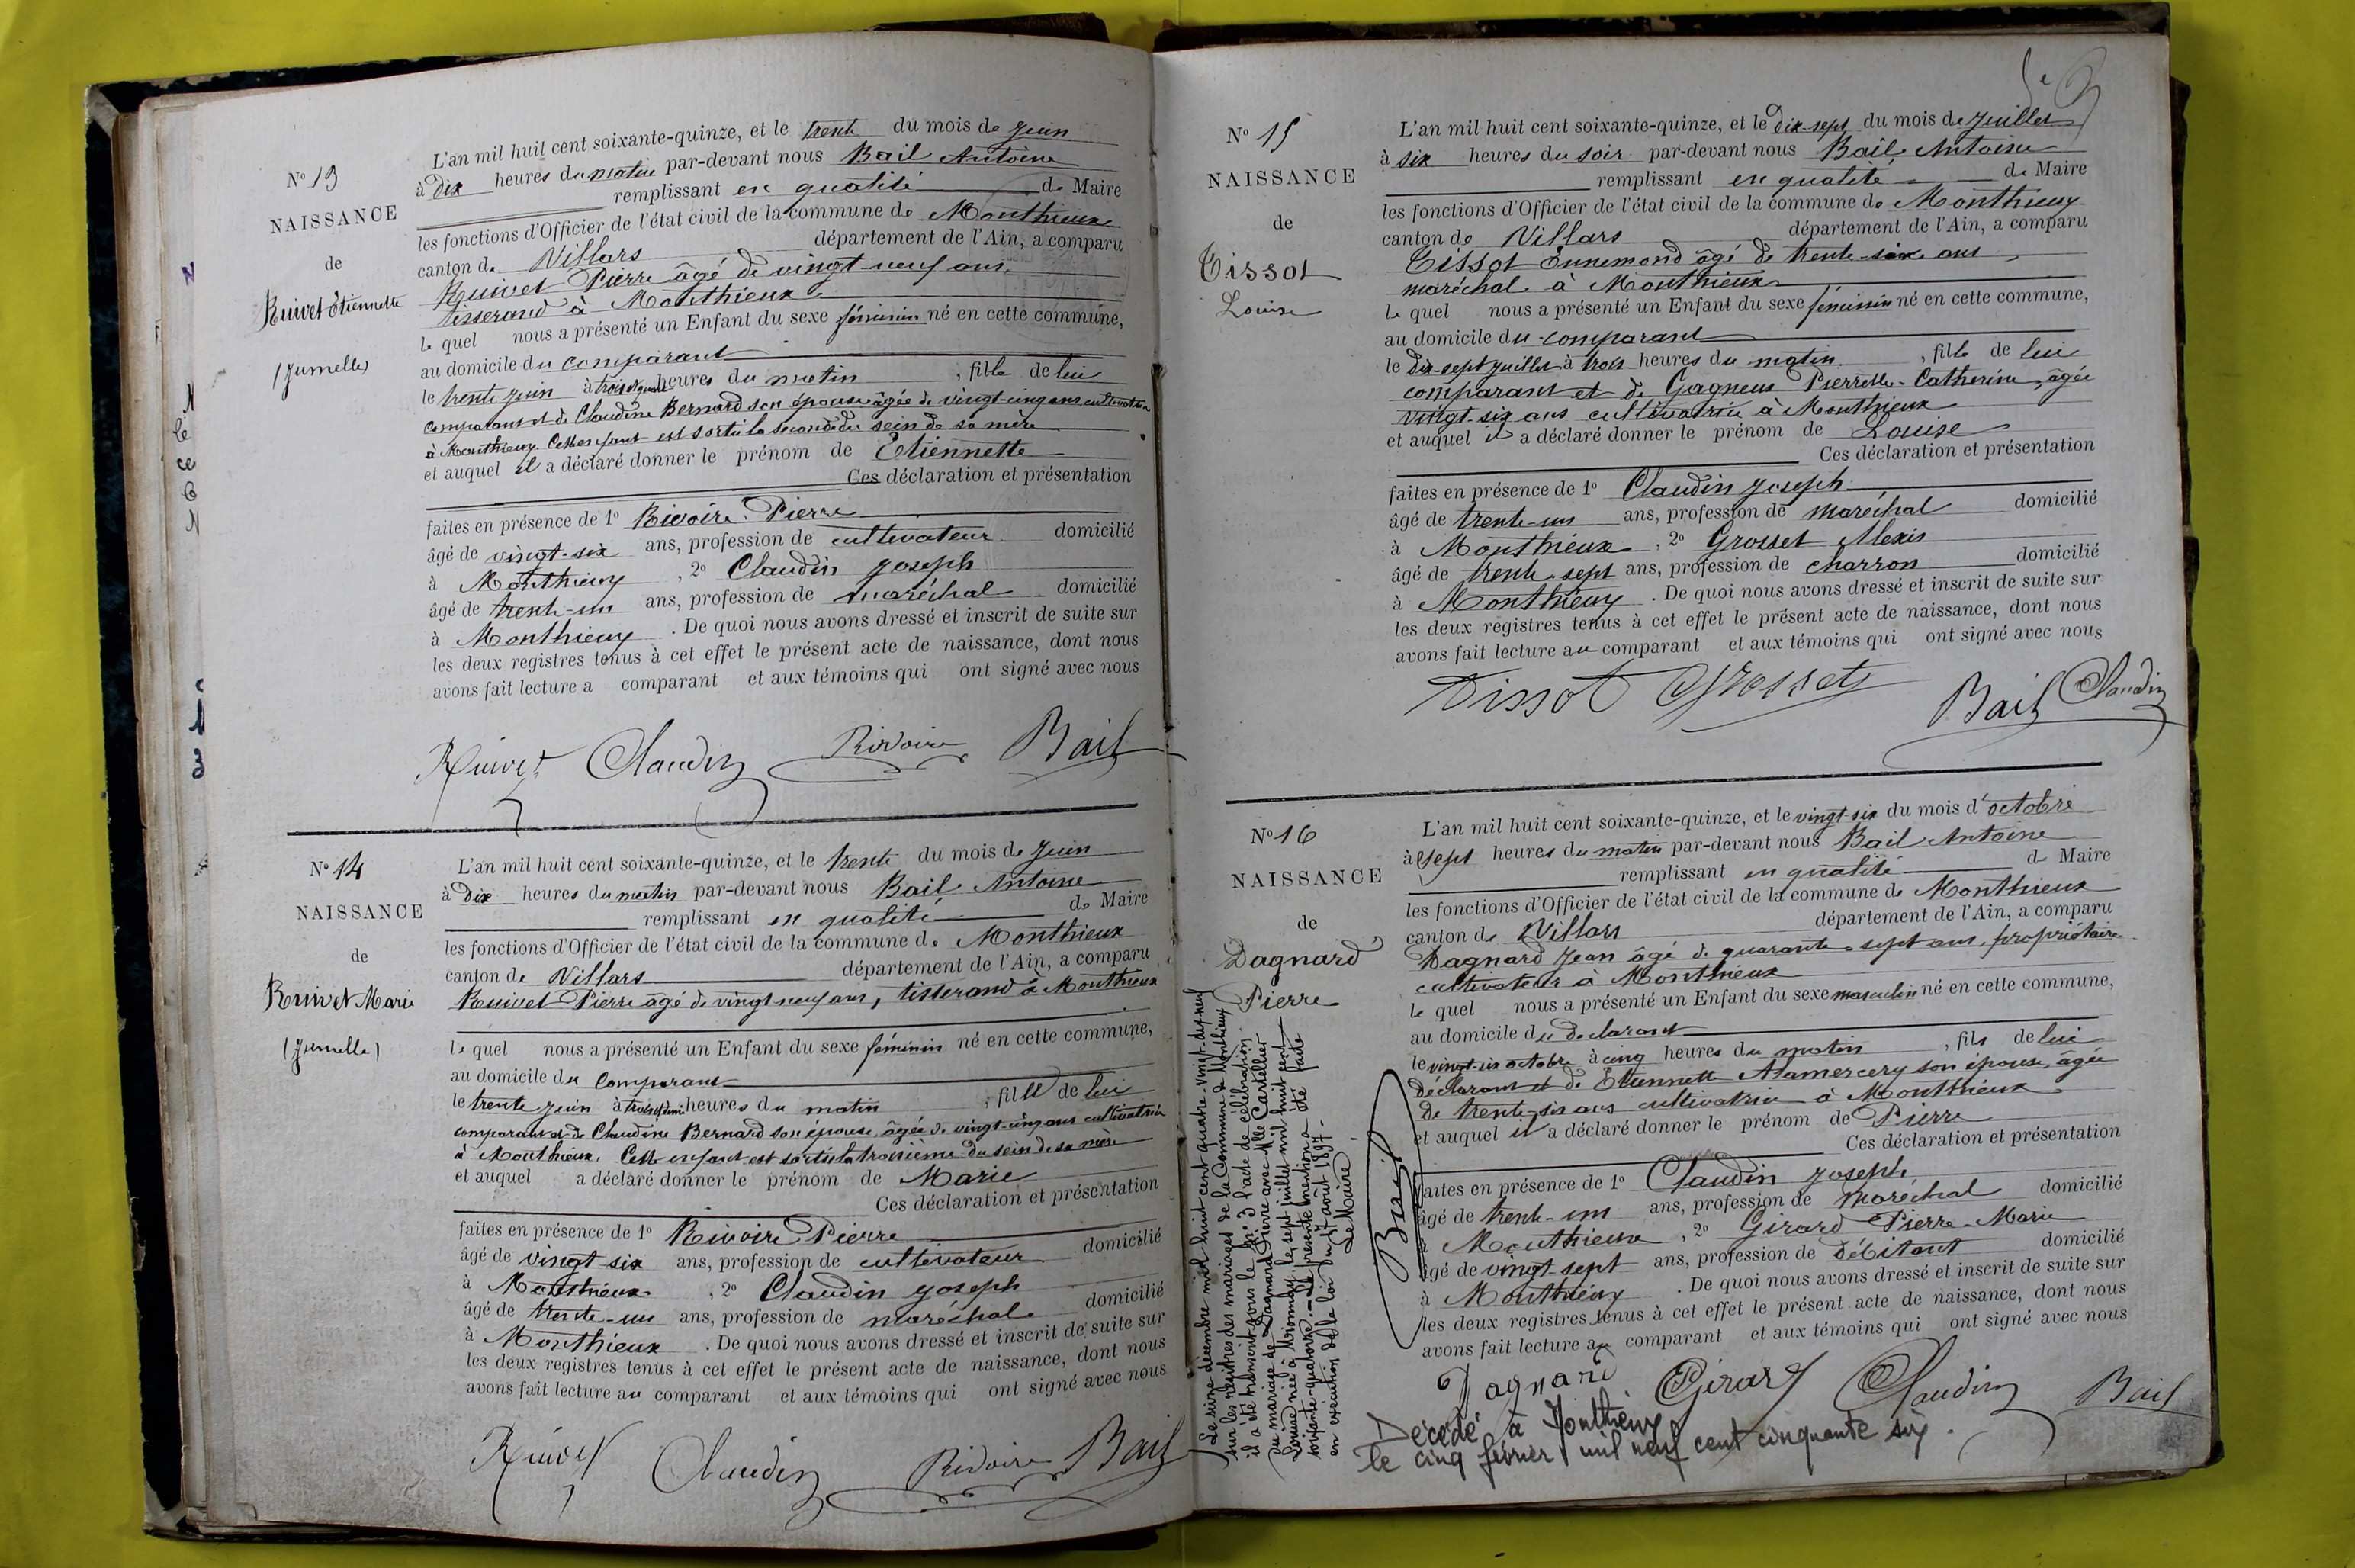 N° 13
NAISSANCE
de
Ruivet Etiennette
(Jumelle)
L'an mil huit cent soixante-quinze, et le trente du mois de Juin
à dix heures du matin par-devant nous Bail Antoine
remplissant en qualité de Maire
les fonctions d'Officier de l'état civil de la commune de Monthieux
canton de Villars département de l'Ain, a comparu
Ruivet Pierre âgé de vingt-neuf ans
tisserand à Monthieux
le quel nous a présenté un Enfant du sexe féminin né en cette commune,
au domicile du comparant
le trente juin à trois et quart heures du matin , fille de lui
comparant et de Claudine Bernard son épouse âgée de vingt-cinq ans cultivatrice
à Monthieux. Cette enfant est sortie la seconde du sein de sa mère
et auquel il a déclaré donner le prénom de Etiennette
Ces déclaration et présentation
faites en présence de 1° Rivoire Pierre
âgé de vingt-six ans, profession de cultivateur domicilié
à Monthieux , 2° Claudin Joseph
âgé de trente-un ans, profession de maréchal domicilié
à Monthieux . De quoi nous avons dressé et inscrit de suite sur
les deux registres tenus à cet effet le présent acte de naissance, dont nous
avons fait lecture a comparant et aux témoins qui ont signé avec nous
Ruivet Claudin Rivoire Bail
N° 14
NAISSANCE
de
Ruivet Marie
(Jumelle)
L'an mil huit cent soixante-quinze, et le trente du mois de Juin
à dix heures du matin par-devant nous Bail Antoine
remplissant en qualité de Maire
les fonctions d'Officier de l'état civil de la commune de Monthieux
canton de Villars département de l'Ain, a comparu
Ruivet Pierre âgé de vingt-neuf ans, tisserand à Monthieux
le quel nous a présenté un Enfant du sexe féminin né en cette commune,
au domicile du comparant
le trente juin à trois et demi heures du matin , fille de lui
comparant et de Claudine Bernard son épouse, âgée de vingt-cinq ans cultivatrice
à Monthieux. Cette enfant est sortie la troisième du sein de sa mère
et auquel a déclaré donner le prénom de Marie
Ces déclaration et présentation
faites en présence de 1° Rivoire Pierre
âgé de vingt-six ans, profession de cultivateur domicilié
à Monthieux , 2° Claudin Joseph
âgé de trente-un ans, profession de maréchal domicilié
à Monthieux . De quoi nous avons dressé et inscrit de suite sur
les deux registres tenus à cet effet le présent acte de naissance, dont nous
avons fait lecture au comparant et aux témoins qui ont signé avec nous
Ruivet Claudin Rivoire Bail
N° 15
NAISSANCE
de
Tissot
Louise
L'an mil huit cent soixante-quinze, et le dix-sept du mois de Juillet
à six heures du soir par-devant nous Bail Antoine
remplissant en qualité de Maire
les fonctions d'Officier de l'état civil de la commune de Monthieux
canton de Villars département de l'Ain, a comparu
Tissot Ennemond âgé de trente-six ans,
maréchal à Monthieux
le quel nous a présenté un Enfant du sexe féminin né en cette commune,
au domicile du comparant
le dix-sept juillet à trois heures du matin , fille de lui
comparant et de Gagneux Pierrette-Catherine, âgée
vingt-six ans cultivatrice à Monthieux
et auquel il a déclaré donner le prénom de Louise
Ces déclaration et présentation
faites en présence de 1° Claudin Joseph
âgé de trente-un ans, profession de maréchal domicilié
à Monthieux , 2° Grosset Alexis
âgé de trente-sept ans, profession de charron domicilié
à Monthieux . De quoi nous avons dressé et inscrit de suite sur
les deux registres tenus à cet effet le présent acte de naissance, dont nous
avons fait lecture au comparant et aux témoins qui ont signé avec nous
Tissot Grosset Bail Claudin
N° 16
NAISSANCE
de
Dagnard
Pierre
L'an mil huit cent soixante-quinze, et le vingt-six du mois d'octobre
à sept heures du matin par-devant nous Bail Antoine
remplissant en qualité de Maire
les fonctions d'Officier de l'état civil de la commune de Monthieux
canton de Villars département de l'Ain, a comparu
Dagnard Jean âgé de quarante-sept ans, propriétaire
cultivateur à Monthieux
le quel nous a présenté un Enfant du sexe masculin né en cette commune,
au domicile du déclarant
le vingt-six octobre à cinq heures du matin , fils de lui
déclarant et de Etiennette Alamercery son épouse, âgée
de trente-six ans cultivatrice à Monthieux
et auquel il a déclaré donner le prénom de Pierre
Ces déclaration et présentation
faites en présence de 1° Claudin Joseph
âgé de trente-un ans, profession de maréchal domicilié
à Monthieux , 2° Girard Pierre-Marie
âgé de vingt-sept ans, profession de débitant domicilié
à Monthieux . De quoi nous avons dressé et inscrit de suite sur
les deux registres tenus à cet effet le présent acte de naissance, dont nous
avons fait lecture au comparant et aux témoins qui ont signé avec nous
Dagnard Girard Claudin Bail
Décédé à Monthieux
le cinq février mil neuf cent cinquante six.
Le seize décembre mil huit cent quatre-vingt-dix-neuf
sur les registres des mariages de la Commune de Monthieux
il a été transcrit sous le n° 3 l'acte de célébration
du mariage de Dagnard Pierre avec Mlle Cartellier
Louise née à Mionnay le sept juillet mil huit cent
soixante-quatorze. — La présente mention a été faite
en exécution de la loi du 17 août 1897.
Le Maire
Bail